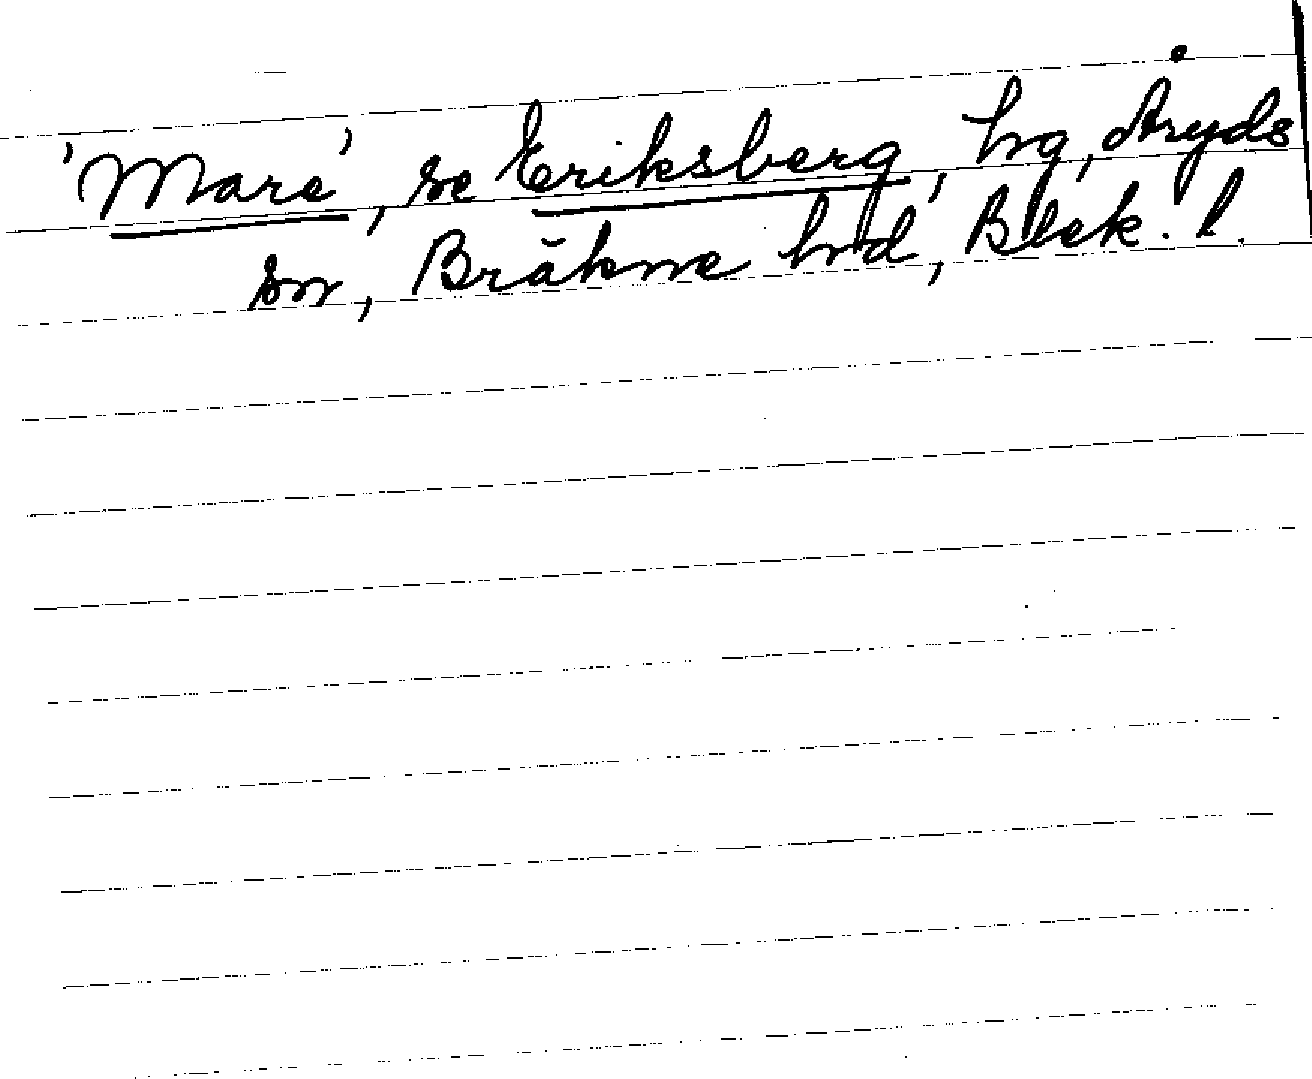 'Mare', se Eriksberg, hg, Åryds
sn, Bräkne hd, Blek. l.